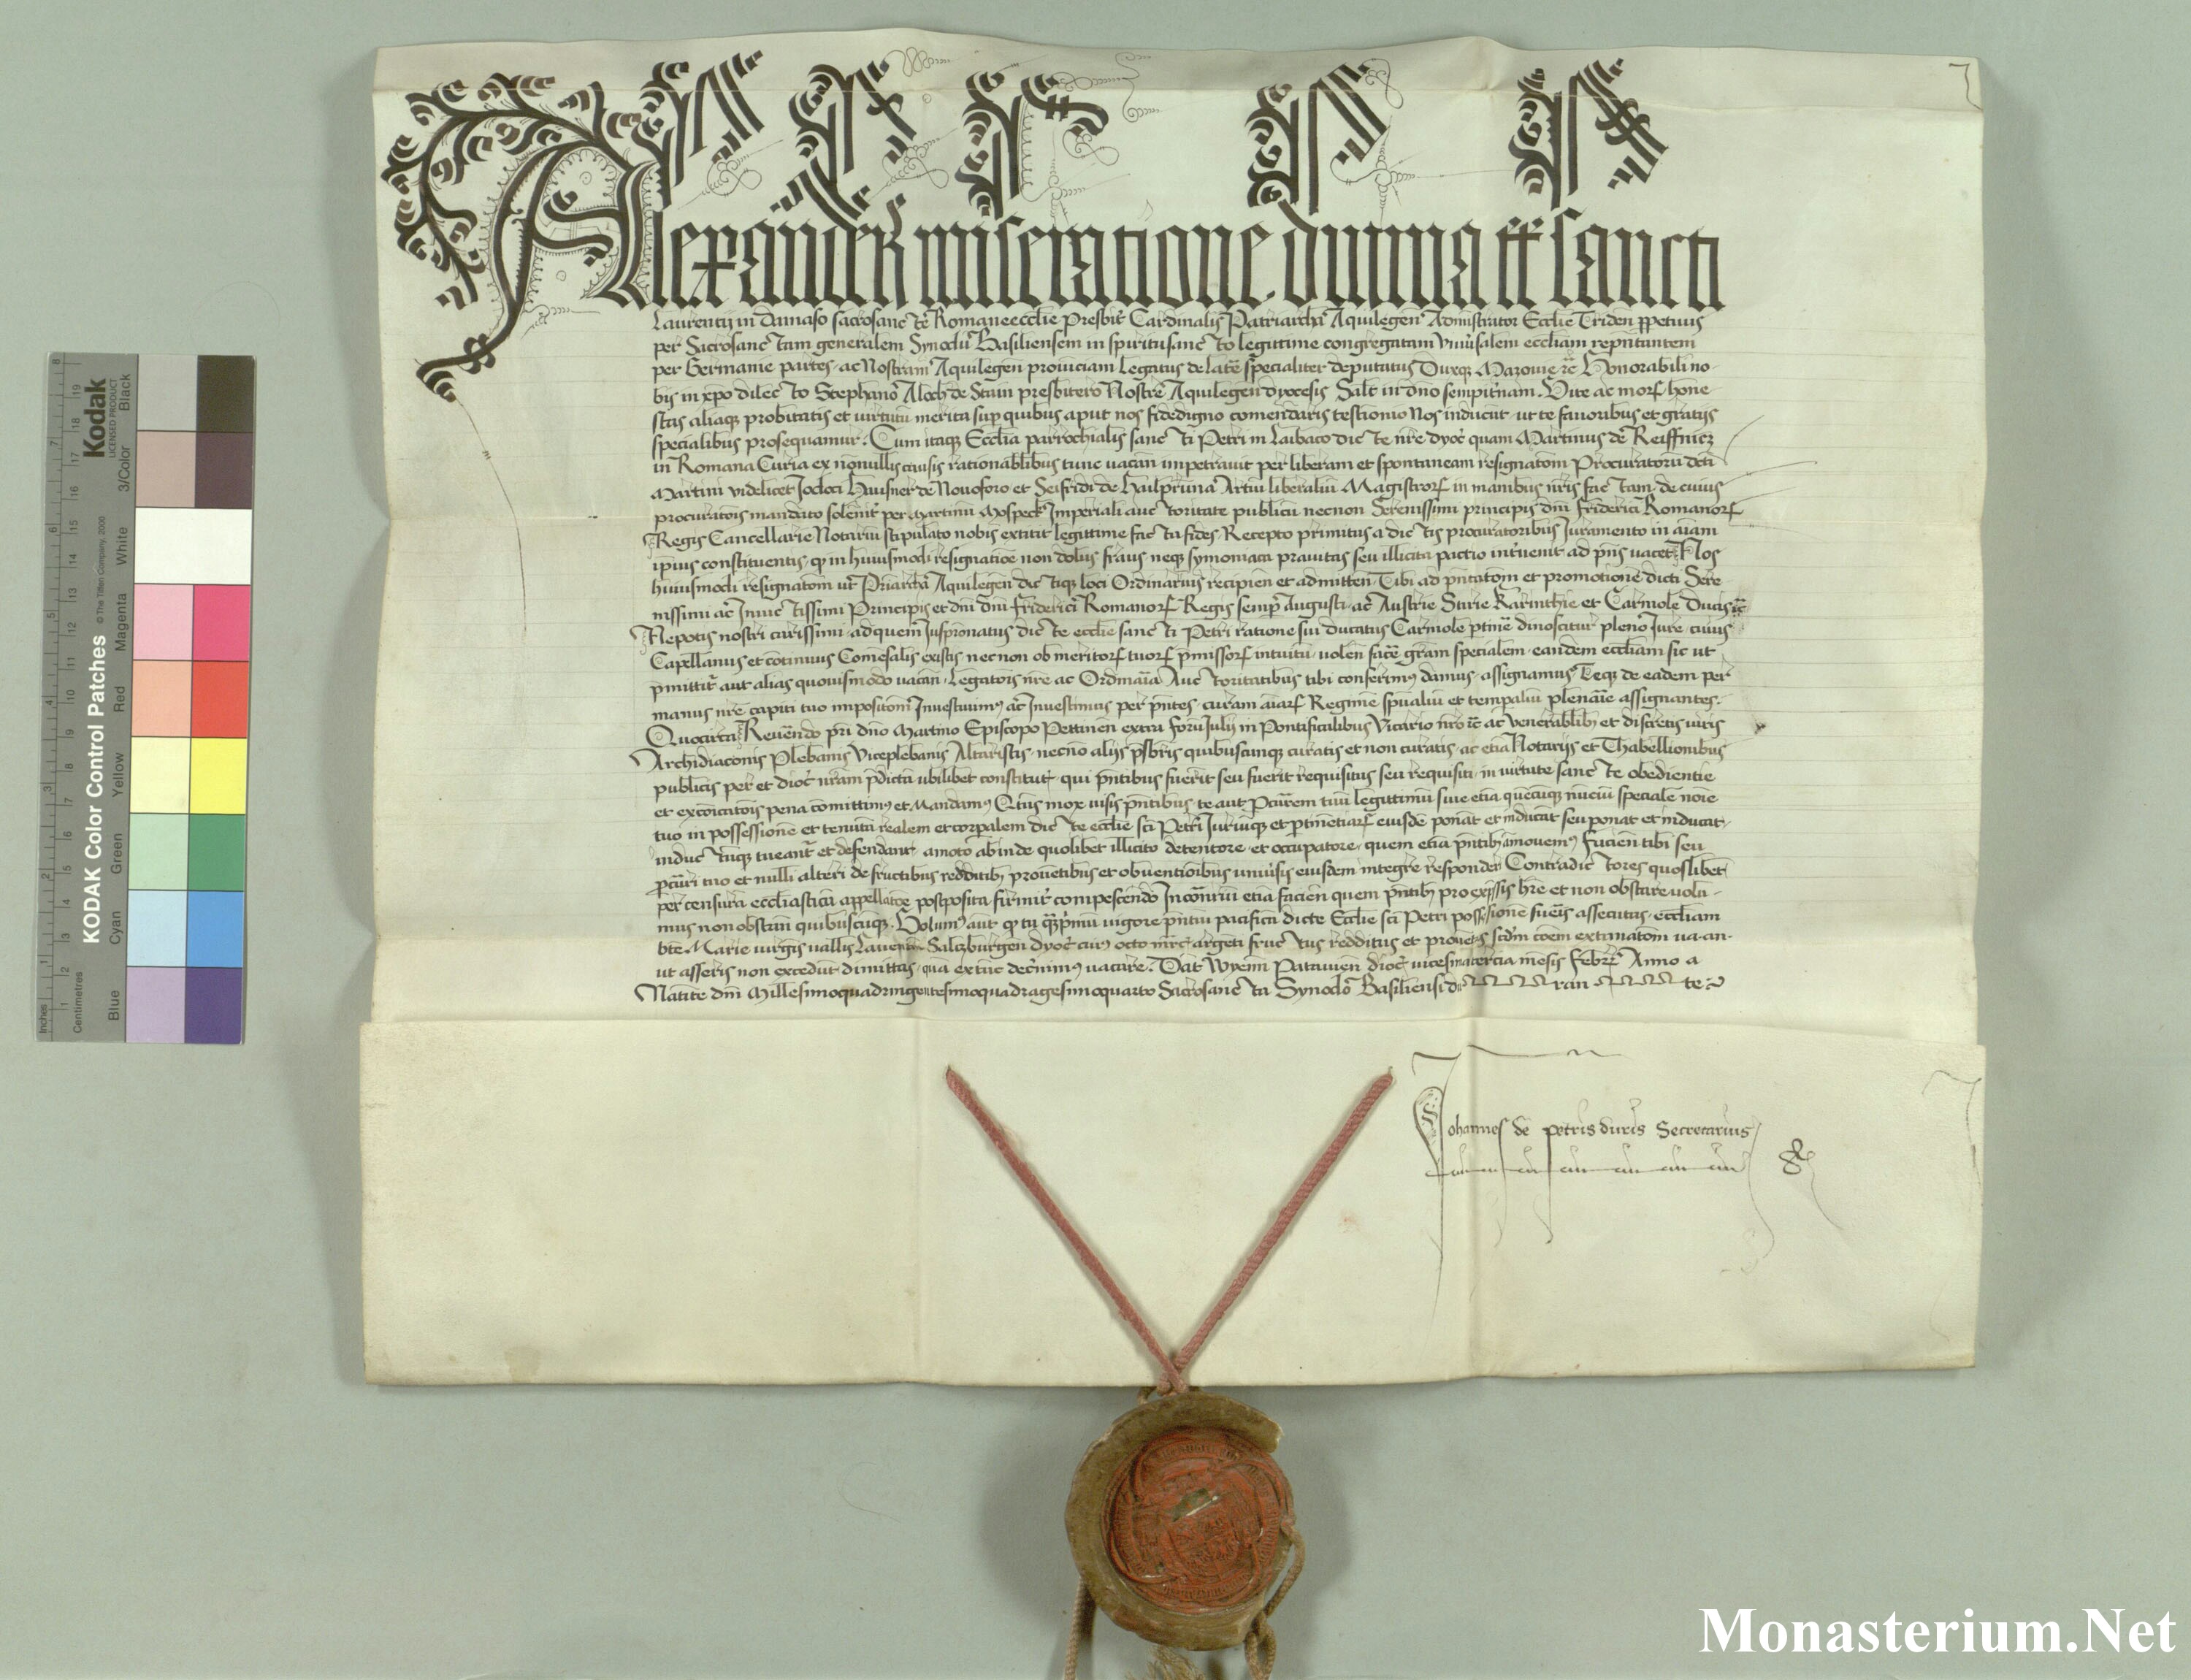 Alexander miseratione diuina tt sancti
Laurentij in Damaso sacrosancte Romane ecclie Presbit Cardinalis Patriarcha Aquilegen Administrator Ecclie Triden ppetuus
per Sacrosanctam generalem Synodu Basiliensem in spiritusancto legittime congregatam vniusalem eccliam repntantem
per Germanie partes ac Nostram Aquilegen prouinciam Legatus de latere specialiter deputatus Duxq Mazouie rc Honorabili no-
bis in xpo dilecto Stephano Aloch de Stain presbitero Nostre Aquilegen dyocesis Salt in dno sempitnam. Vite ac mor hone-
stas aliaq probitatis et virtutu merita sup quibus aput nos fidedigno comendaris testionio Nos inducut ut te fauoribus et gratijs
specialibus prosequamur. Cum itaq Ecclia parrochialis sancti Petri in Laibaco dicte nre dyoc quam Martinus de Reiffnicz
in Romana Curia ex nonnullis causis rationabilibus tunc vacan impetrauit per liberam et spontaneam resignatom Procuratoru dcti
Martini videlicet Jodoci Hausner de Nouoforo et Seifridi de Hailpruna Artiu liberaliu Magistror in manibus nris factam de cuius
procuratois mandato solenit per Martinu Mospeck Imperiali auctoritate publicu necnon Serenissimi principis dni Friderici Romanor
Regis Cancellarie Notariu stipulato nobis extitit legittime facta fides Recepto primitus a dictis procuratoribus Juramento in aiam
ipius constituentis q in huiusmodi resignatioe non dolus fraus neq symoniaca prauitas seu illicita pactio intuenit ad pns vacet Nos
huiusmodi resignatom ut Priarcha Aquilegen dictiq loci Ordinarius recipien et admitten Tibi ad pntatom et promotione dicti Sere-
nissimi ac Inuictissimi Principis et dni dni Friderici Romanor Regis semp Augusti ac Austrie Stirie Karinthie et Carniole Ducis rc
Nepotis nostri carissimi ad quem Juspronatus dicte ecclie sancti Petri ratione sui ducatus Carniole ptine dinoscitur pleno Jure cuius
Capellanus et cotinuus Comesalis existis necnon ob meritor tuor pmissor intuitu uolen face gram specialem eandem eccliam sic ut
pmittit aut alias quouismodo vacan Legatois nre ac Ordinaia Auctoritatibus tibi conferim damus assignamus Teq de eadem per
manus nre capiti tuo impositom Inuestiuim ac Inuestimus per pntes curam aiar Regimie spualiu et tempaliu plenarie assignantes.
Quocirca Reuendo pri dno Martino Episcopo Pettinen extra foru Julij in Pontificalibus Vicario nro rc ac venerablib et discretis viris
Archidiaconis Plebanis Viceplebanis Altaristis necno alijs psbris quibuscunq curatis et non curatis ac etia Notarijs et Thabellionibus
publicis per et dioc nram pdicta vbilibet constitut qui pntibus fuerit seu fuerit requisitus seu requisiti in virtute sancte obedientie
et excoicatois pena comittim et Mandam Qtins mox visis pntibus te aut Pcurem tuu legittimu siue etia quecuq nuciu speciale noie
tuo in possessione et tenuta realem et corpalem dicte ecclie sci Petri Juriuq et ptinetiar eiusde ponat et inducat seu ponat et inducat
inductuq tueant et defendant amoto abinde quolibet illicito detentore et occupatore quem etia pntib amouem Facien tibi seu
pcuri tuo et nulli alteri de fructibus redditib prouetibus et obuentioibus vniusis eiusdem integre responderi Contradictores quoslibet
per censura ecclasticam appellatoe postposita firmit compescendo Incontriu etia facien quem pntib pro expssis hre et non obstare volu-
mus non obstan quibuscuq. Volum aut q tu qprimu vigore pntiu pacifica dicte Ecclie sci Petri possessione fueris assecutus eccliam
bte Marie virgis vallis Lauentin Salczburgen dyoc cui octo mrc argeti fructus redditus et prouets scdm coem extimatom ua-an-
ut asseris non excedut dimittas qua extuc decnim vacare. Dat Wyenn Patauien dioc vicesimatercia mesis Febr Anno a
Natiite dni Millesimoquadringentesimoquadragesimoquarto Sacrosancta Synodo Basiliensi durante
Johannes de petris duris Secretarius
Monasterium.Net
KODAK Color Control Patches
Kodak
LICENSED PRODUCT
© The Tiffen Company, 2000
Inches
Centimetres
Blue
Cyan
Green
Yellow
Red
Magenta
White
3/Color
Black